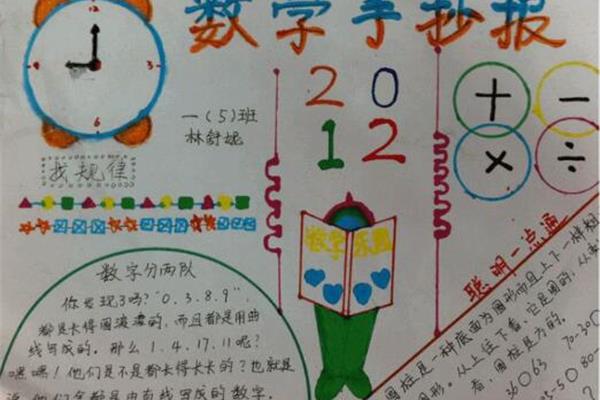 数学手抄报
12
3
6
9
一（5）班
林舒妮
20
12
+ −
× ÷
找规律
数学乐园
聪明一点通
数字分两队
你发现了吗？“0.3.8.9”，
都是长得圆滚滚的，而且都是用曲
线写成的。那么1.4.17.11呢？
嘿嘿！他们是不是都长得长长的？也就是
说他们全都是由直线写成的数字。
圆柱是一种底面为圆形而且上下一样粗
图形。从上往下看，它是圆的，从
看，圆柱是方的。
36○63 70-30○
5-50○80-